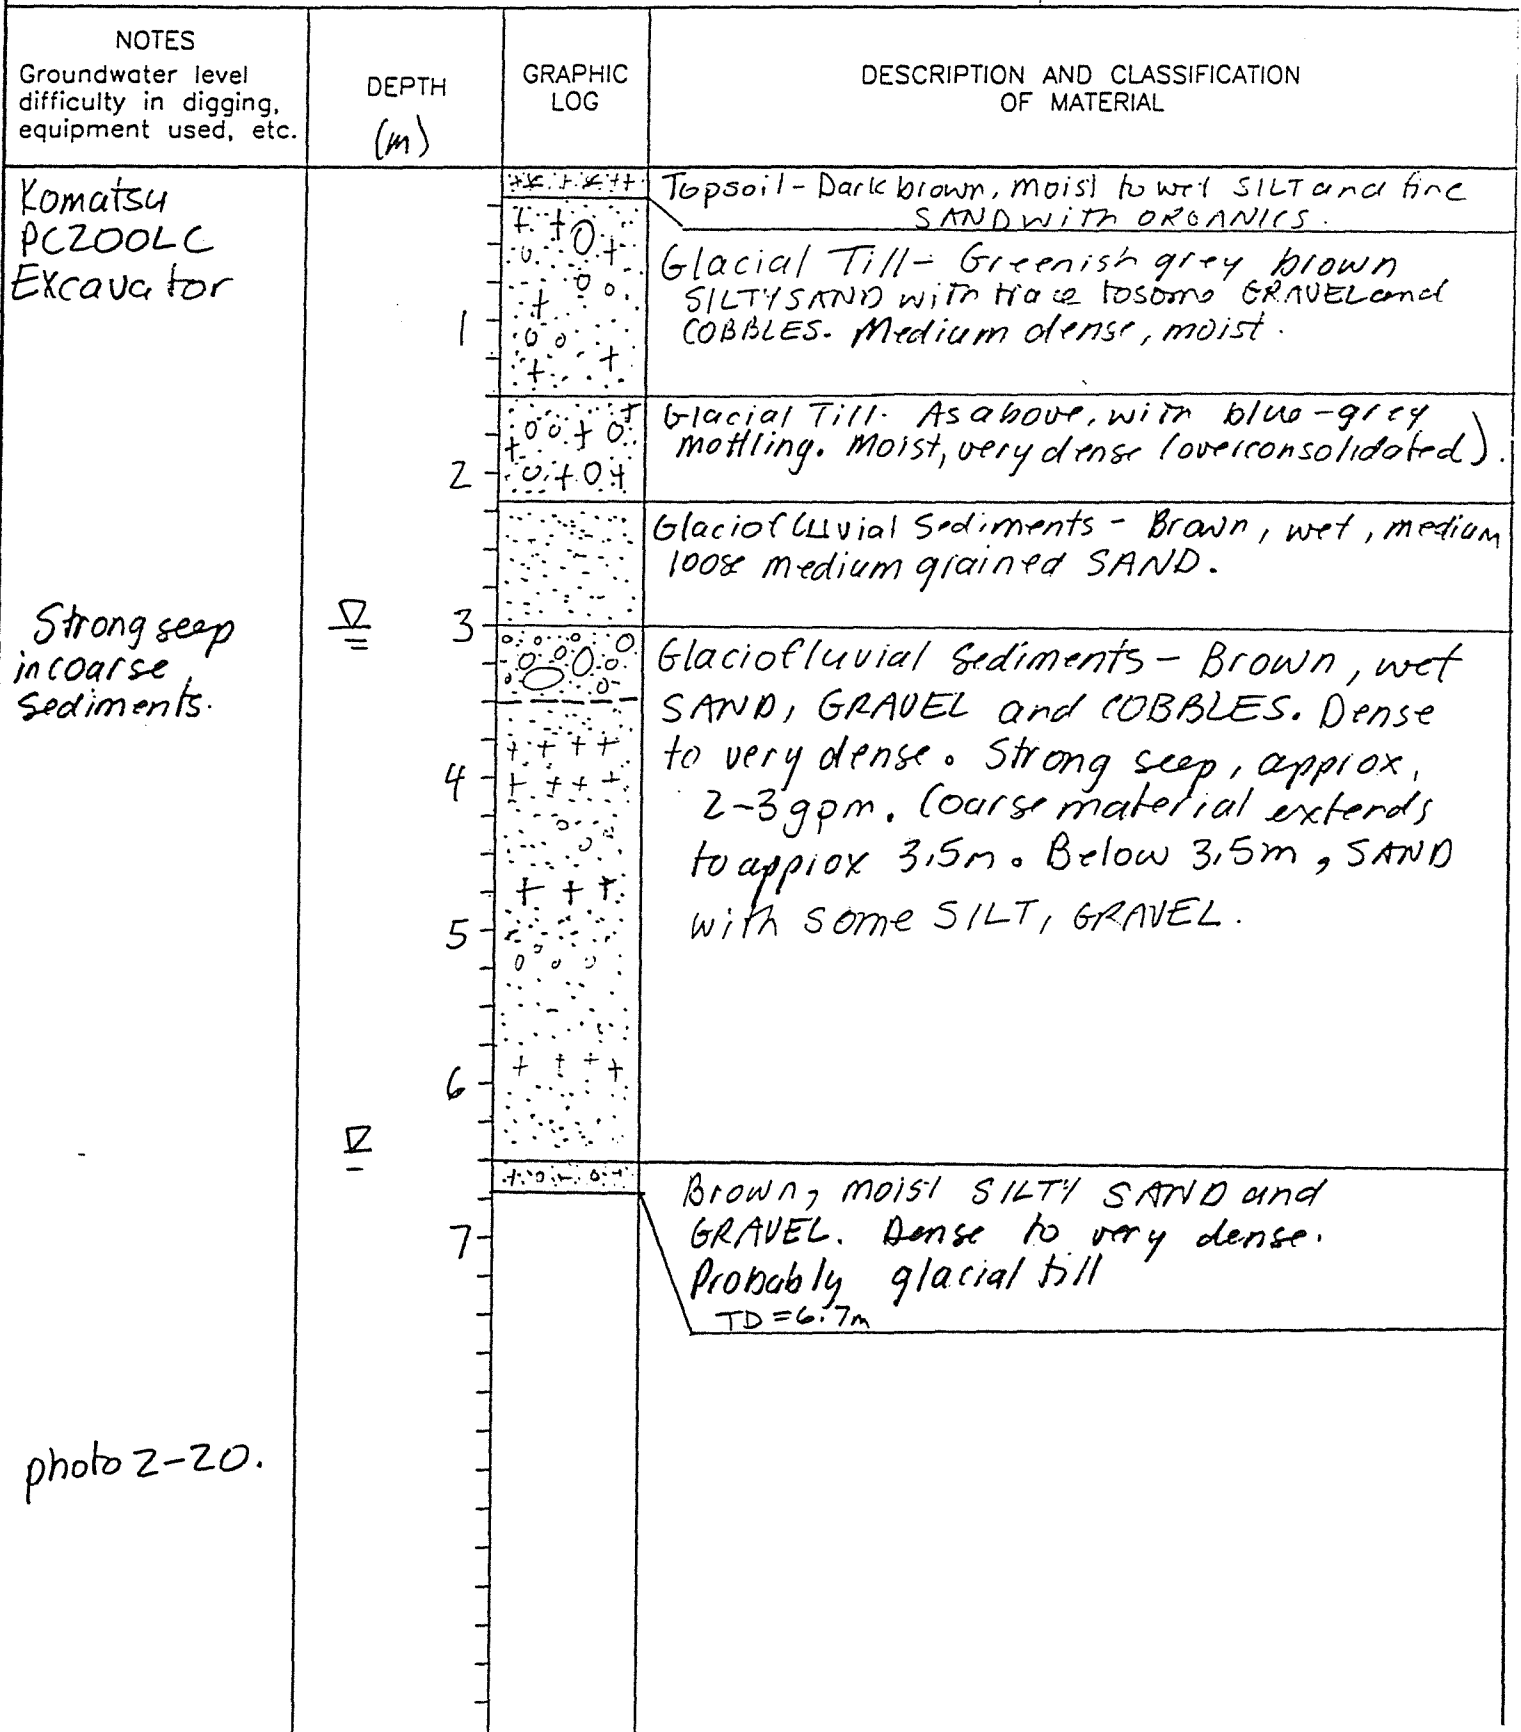 NOTES
Groundwater level
difficulty in digging,
equipment used, etc.
DEPTH
(m)
GRAPHIC
LOG
DESCRIPTION AND CLASSIFICATION
OF MATERIAL
Komatsu
PC200LC
Excavator
Topsoil - Dark brown, moist to wet SILT and fine
SAND with ORGANICS.
Glacial Till - Greenish grey brown
SILTY SAND with trace to some GRAVEL and
COBBLES. Medium dense, moist.
1
Glacial Till. As above, with blue-grey
mottling. Moist, very dense (overconsolidated).
2
Glaciofluvial Sediments - Brown, wet, medium
loose medium grained SAND.
Strong seep
in coarse
sediments.
3
Glaciofluvial Sediments - Brown, wet
SAND, GRAVEL and COBBLES. Dense
to very dense. Strong seep, approx.
2-3 gpm. Coarse material extends
to approx 3.5m. Below 3.5m, SAND
with some SILT, GRAVEL.
4
5
6
Brown, moist SILTY SAND and
GRAVEL. Dense to very dense.
Probably glacial till
TD = 6.7m
7
photo 2-20.